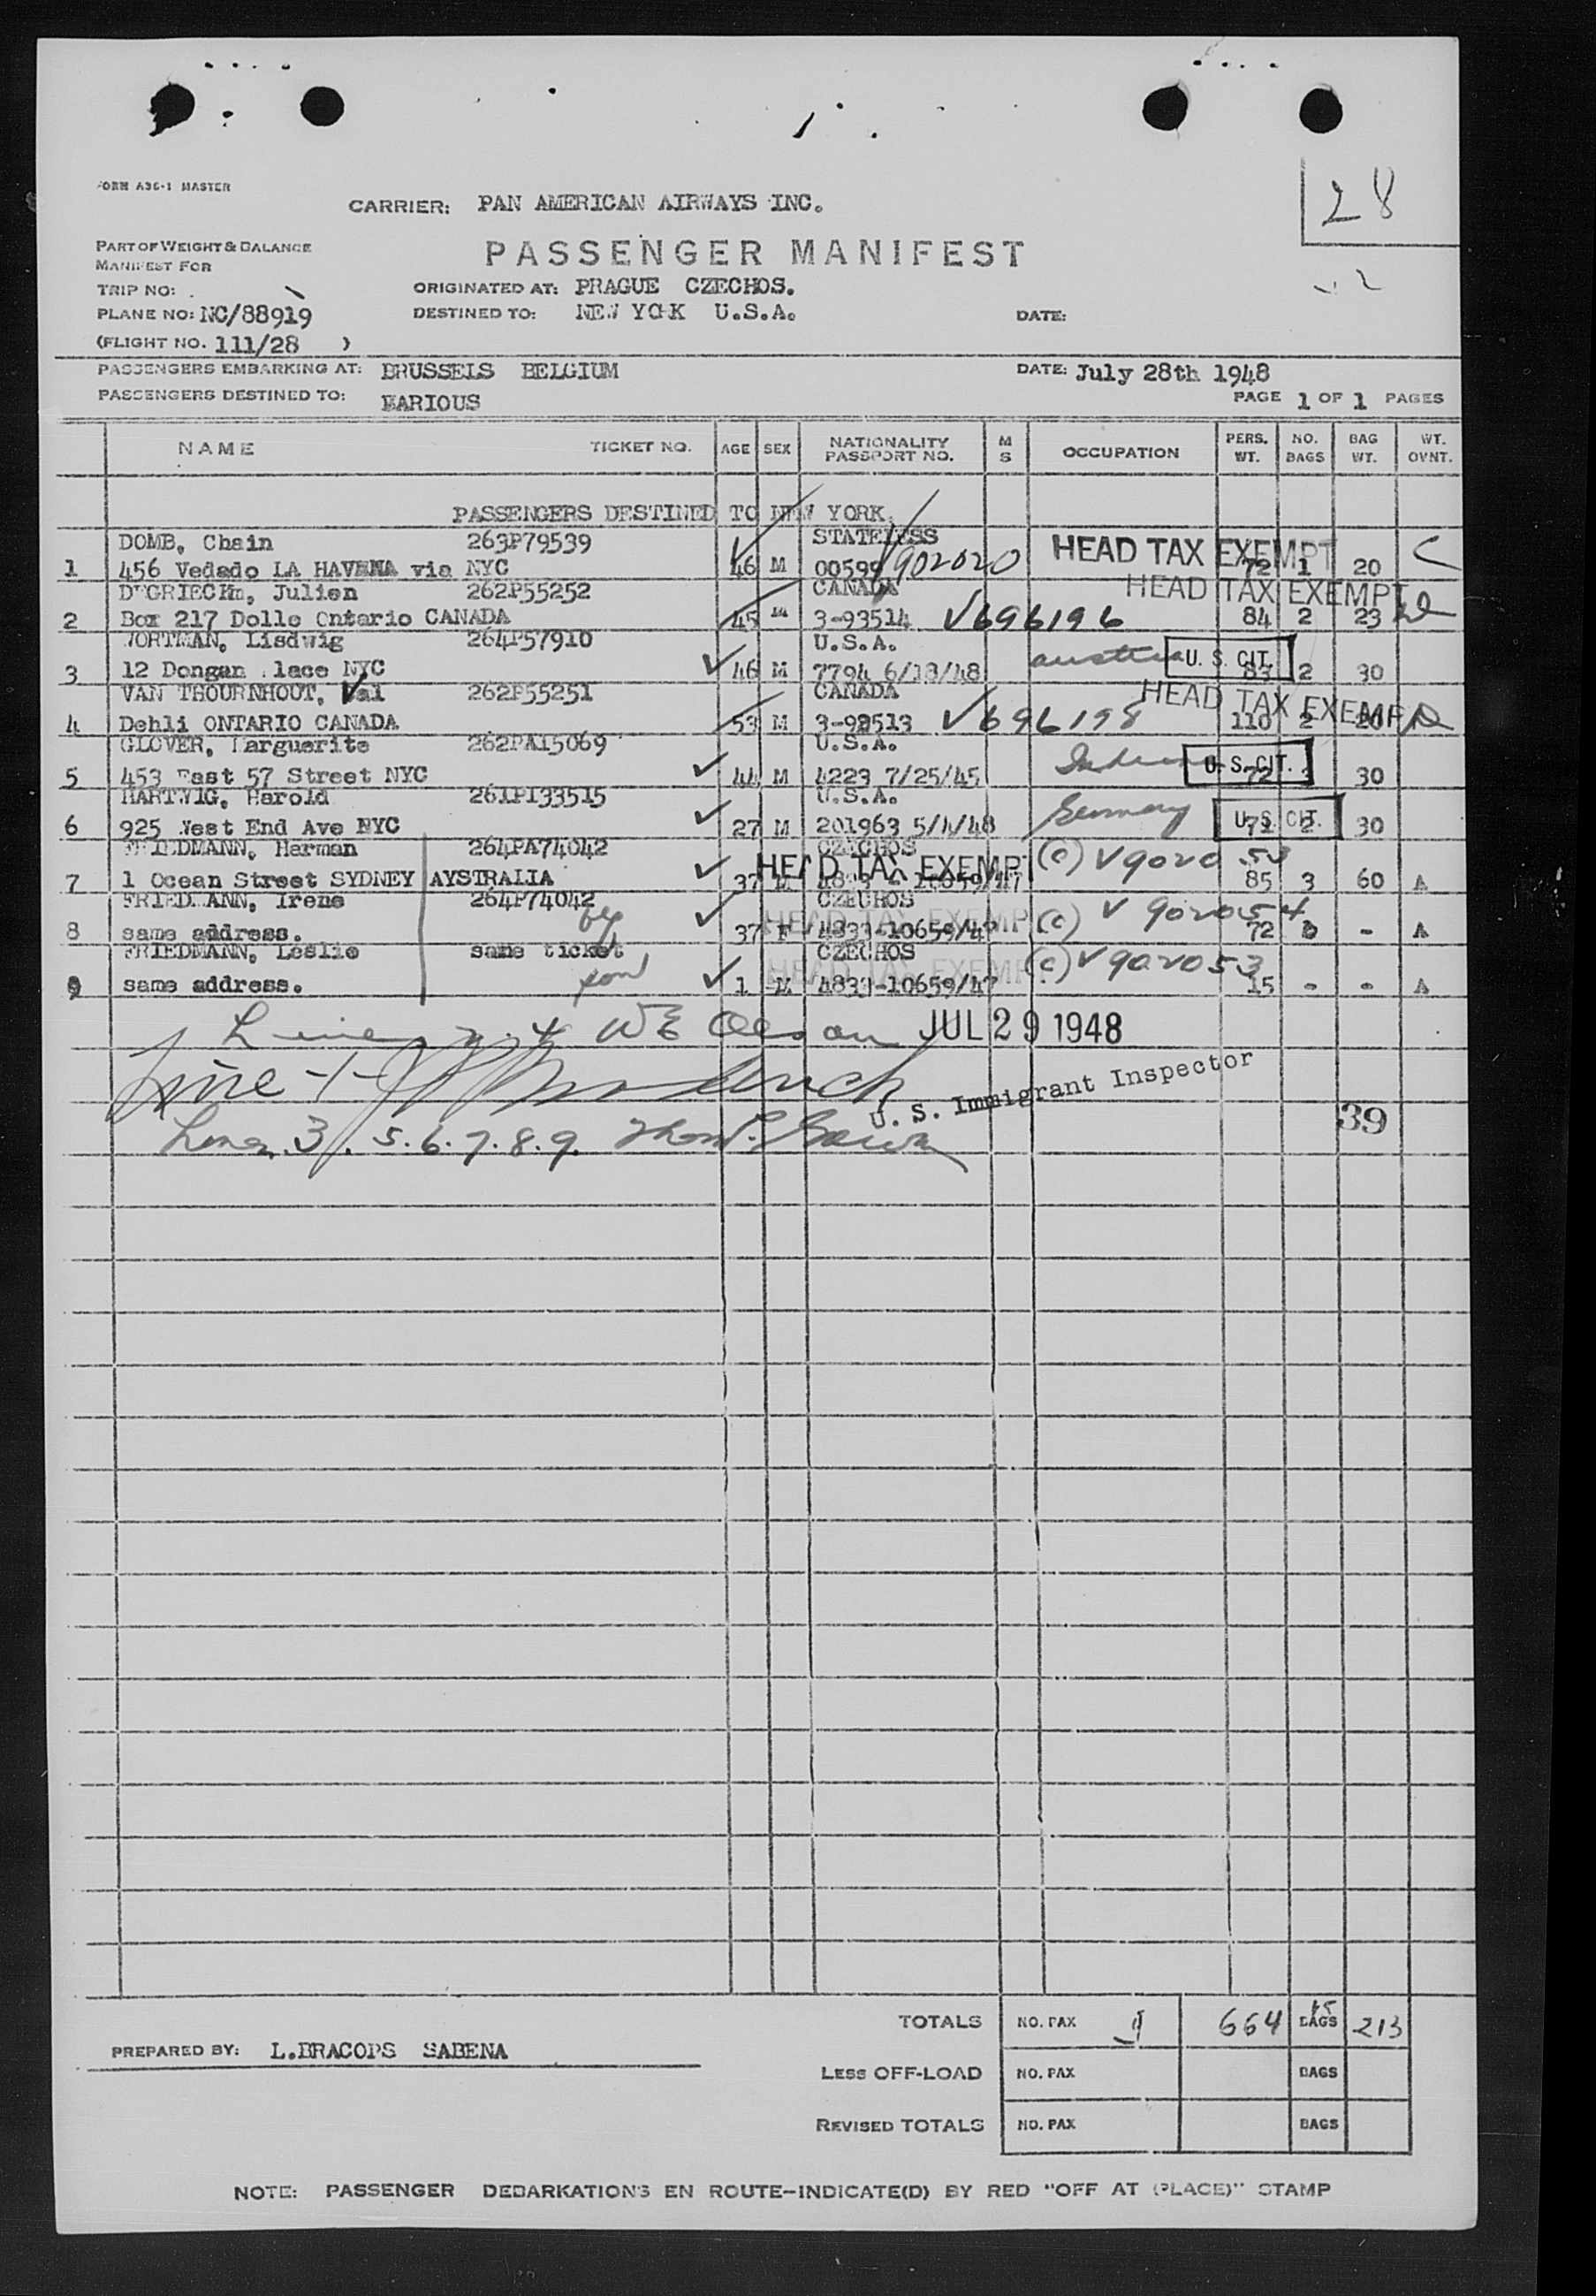 FORM A36-1 MASTER
28
CARRIER: PAN AMERICAN AIRWAYS INC.
PART OF WEIGHT & BALANCE
MANIFEST FOR
PASSENGER MANIFEST
TRIP NO:
ORIGINATED AT: PRAGUE CZECHOS.
PLANE NO: NC/88919
DESTINED TO: NEW YORK U.S.A.
DATE:
(FLIGHT NO. 111/28 )
PASSENGERS EMBARKING AT: BRUSSELS BELGIUM
DATE: July 28th 1948
PASSENGERS DESTINED TO: WARIOUS
PAGE 1 OF 1 PAGES
NAME TICKET NO. AGE SEX NATIONALITY PASSPORT NO. M S OCCUPATION PERS. WT. NO. BAGS BAG WT. WT. OVNT.
PASSENGERS DESTINED TO NEW YORK.
DOMB, Chain 263P79539 STATELESS
1 456 Vedado LA HAVENA via NYC 46 M 00599 V902020 HEAD TAX EXEMPT 72 1 20 C
D'GRIECKm, Julien 262P55252 CANADA HEAD TAX EXEMPT
2 Box 217 Dolle Ontario CANADA 45 " 3-93514 V696196 84 2 23
WORTMAN, Lisdwig 264P57910 U.S.A.
3 12 Dongan lace NYC 46 M 7794 6/18/48 Austria U. S. CIT. 83 2 30
VAN THOURNHOUT, Val 262P55251 CANADA HEAD TAX EXEMPT
4 Dehli ONTARIO CANADA 53 M 3-93513 V696198 110 2 20
GLOVER, Marguerite 262PA15069 U.S.A.
5 453 East 57 Street NYC 44 M 4223 7/25/45 U. S. CIT. 72 30
HARTWIG, Harold 261P133515 U.S.A.
6 925 West End Ave NYC 27 M 201963 5/4/48 Germany U. S. CIT. 71 2 30
FRIEDMANN, Herman 264PA74042 CZECHOS HEAD TAX EXEMPT (c) V902053
7 1 Ocean Street SYDNEY AYSTRALIA 37 M 4833 - 10659/47 85 3 60 A
FRIEDMANN, Irene 264P74042 CZECHOS HEAD TAX EXEMPT (c) V902054
8 same address. 37 F 4833-10659/47 72 - A
FRIEDMANN, Leslie same ticket CZECHOS HEAD TAX EXEMPT (c) V902053
9 same address. 1 M 4833-10659/47 15 - - A
Lines 2. 4 WE Olson JUL 29 1948
Line -1-
U. S. Immigrant Inspector
Lines. 3. 5. 6. 7. 8. 9.
39
TOTALS NO. PAX 9 664 15 BAGS 213
PREPARED BY: L.BRACOPS SABENA
LESS OFF-LOAD NO. PAX BAGS
REVISED TOTALS NO. PAX BAGS
NOTE: PASSENGER DEBARKATIONS EN ROUTE-INDICATE(D) BY RED "OFF AT (PLACE)" STAMP